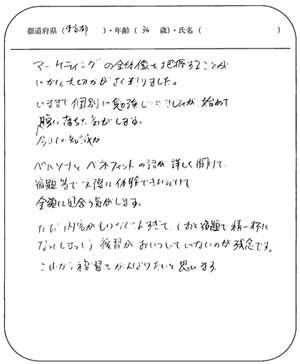 都道府県(東京都)・年齢(36 歳)・氏名( )
マーケティングの全体像を把握することが
いかに大切かがよく判りました。
いままで個別に勉強していたことが初めて
腹に落ちた気がします。
ペルソナとベネフィットの話が詳しく聞けて、
宿題等で実際に体験できただけで
金額に見合う気がします。
ただ内容がもりだくさんすぎて、(あと宿題で精一杯に
なってしまって)復習がおいついていないのが残念です。
これから復習をがんばりたいと思います。